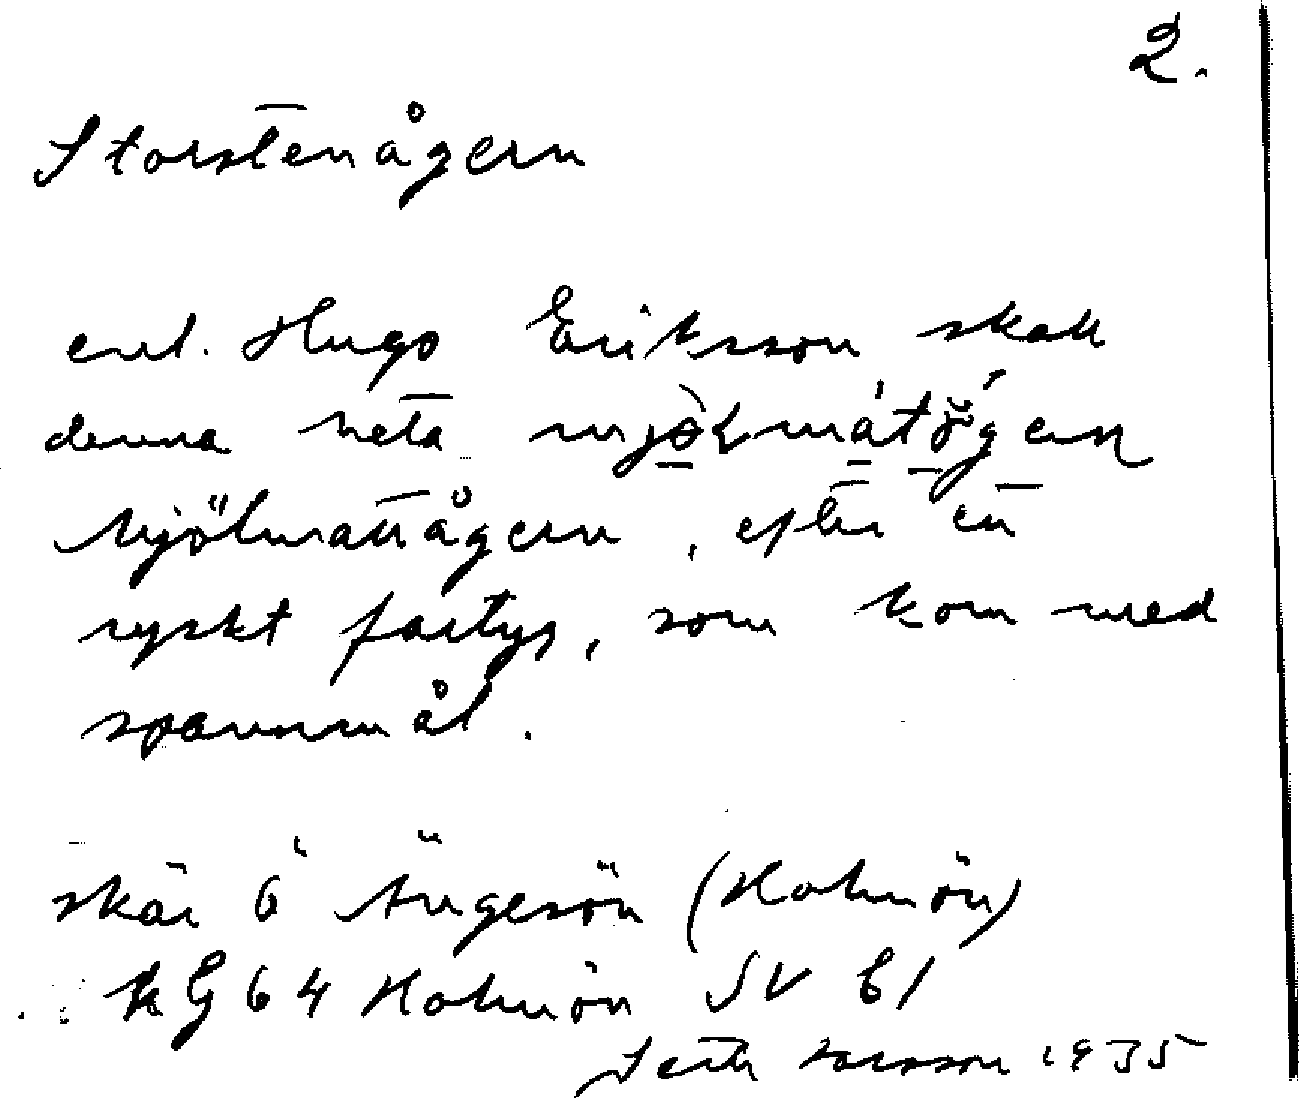 2.
Storstenågern
enl. Hugo Eriksson skall
denna heta
Mjölmattågern, efter ett
ryskt fartyg, som kom med
spannmål.
skär ö Ängesön (Holmön)
KG 64 Holmön SV 61
Seth Larsson 1935